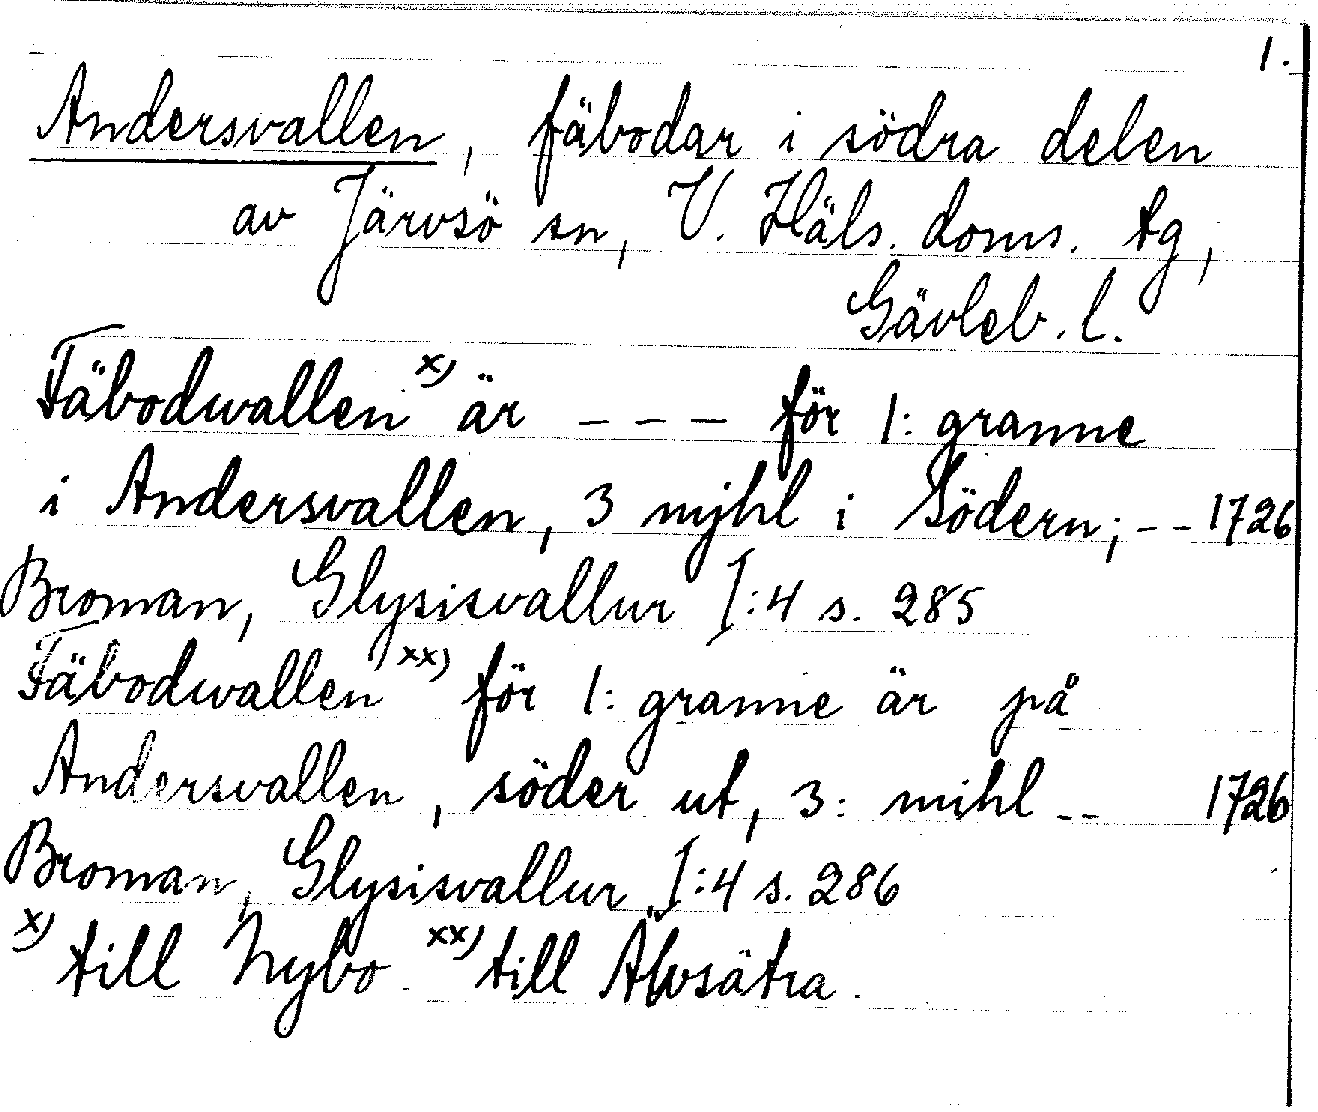 1.
Andersvallen, fäbodar i södra delen
av Järvsö sn, V. Häls. doms. tg,
Gävleb. l.
Fäbodwallen x) är - - - för 1: granne
i Andersvallen, 3 mijhl i Södern; - - 1726
Broman, Glysisvallur I:4 s. 285
Fäbodwallen xx) för 1: granne är på
Andersvallen, söder ut, 3: mihl -- 1726
Broman, Glysisvallur I:4 s. 286
x) till Nybo. xx) till Älvsätra.